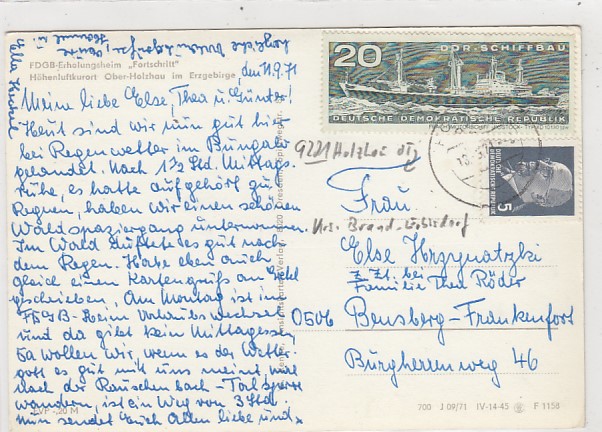 FDGB-Erholungsheim „Fortschritt"
Höhenluftkurort Ober-Holzhau im Erzgebirge
den 11.9.71
Meine liebe Else, Thea u. Günter!
Heut sind wir nun gut hier
bei Regenwetter im Bungalow
gelandet. Nach 1½ Std. Mittags
ruhe, es hatte aufgehört zu
Regnen, haben wir einen schönen
Waldspaziergang unternommen.
Im Wald duftete es gut nach
dem Regen. Habe eben auch
gleich einen Kartengruß an
geschrieben. Am Montag ist im
FDGB-Heim Urlaubswechsel
und da gibt kein Mittagessen
da wollen wir, wenn es der Wetter-
gott es gut mit uns meint, mal
nach der Rauschenbach-Talsperre
wandern, ist ein Weg von 3 Std.
Nun sendet Euch Allen liebe und
herzliche
EVP -,20 M
20
DDR-SCHIFFBAU
DEUTSCHE DEMOKRATISCHE REPUBLIK
DEUTSCHE
DEMOKRATISCHE REPUBLIK
5
9231 Holzhau
Krs. Brand-Erbisdorf
Frau
Else Hrzygnatzki
z. Zt. bei
Familie Thea Röder
0506 Bensberg-Frankenforst
Burgherrenweg 46
700 J 09/71 IV-14-45 F 1158